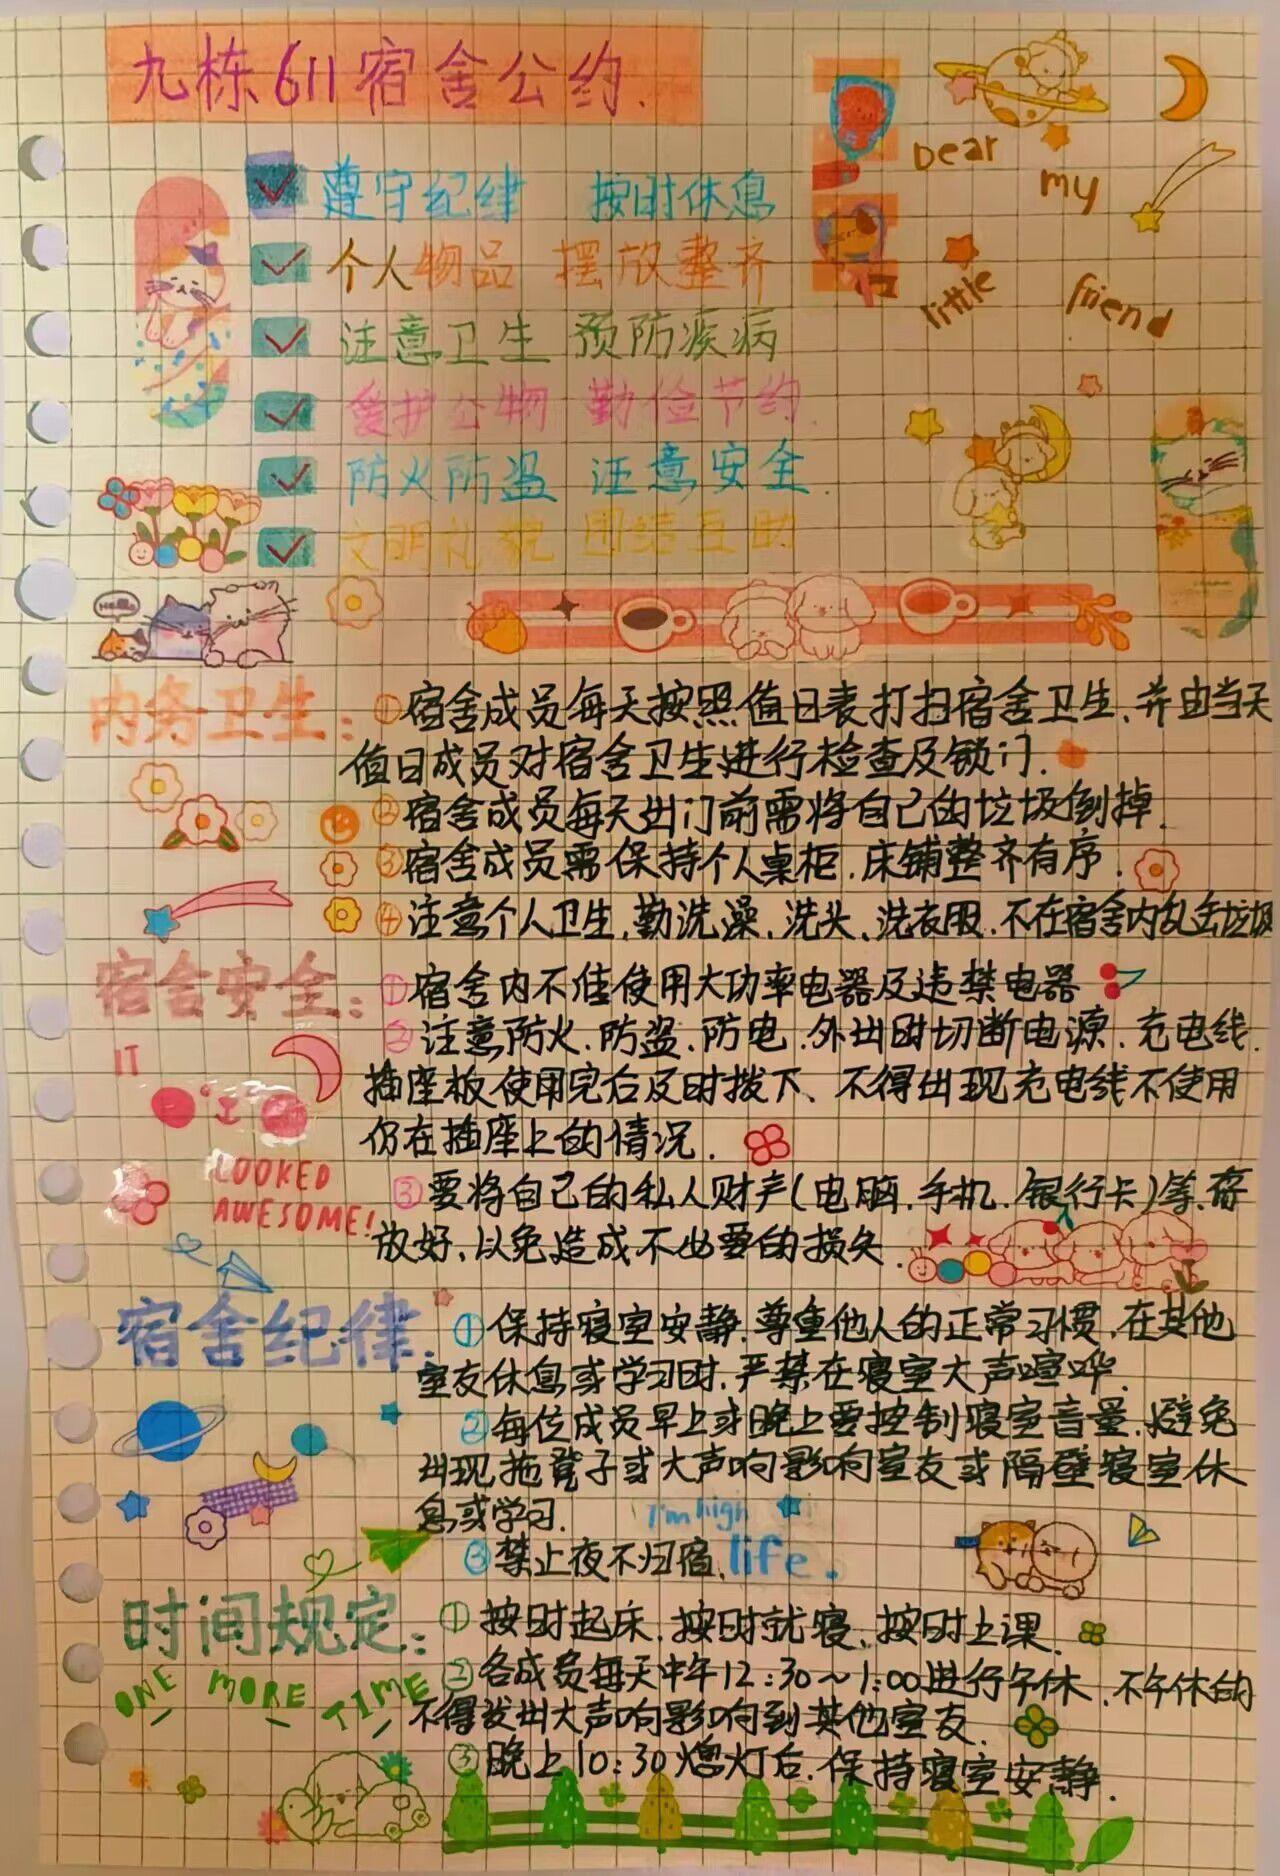 九栋611宿舍公约.
遵守纪律 按时休息
个人物品 摆放整齐
注意卫生 预防疾病
爱护公物 勤俭节约
防火防盗 注意安全.
文明礼貌 团结互助
Dear
my
little
friend
Hello
内务卫生:
①宿舍成员每天按照值日表打扫宿舍卫生,并由当天
值日成员对宿舍卫生进行检查及锁门.
②宿舍成员每天出门前需将自己的垃圾倒掉.
③宿舍成员需保持个人桌柜.床铺整齐有序.
④注意个人卫生,勤洗澡、洗头、洗衣服.不在宿舍内乱丢垃圾
宿舍安全:
①宿舍内不准使用大功率电器及违禁电器
②注意防火.防盗.防电.外出时切断电源.充电线.
插座板使用完后及时拨下、不得出现充电线不使用
仍在插座上的情况.
③要将自己的私人财产(电脑.手机.银行卡)等.存
放好,以免造成不必要的损失.
IT
LOOKED
AWESOME!
宿舍纪律.
①保持寝室安静.尊重他人的正常习惯,在其他
室友休息或学习时,严禁在寝室大声喧哗.
②每位成员早上或晚上要控制寝室音量,避免
出现拖凳子或大声响影响室友或隔壁寝室休
息或学习.
③禁止夜不归宿.
I'm high
life.
时间规定:
①按时起床.按时就寝.按时上课.
②各成员每天中午12:30~1:00进行午休.不午休的
不得发出大声响影响到其他室友.
③晚上10:30熄灯后.保持寝室安静.
ONE MORE TIME